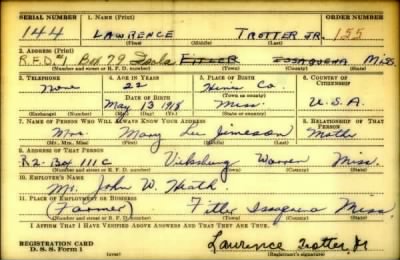 SERIAL NUMBER 1. NAME (Print) ORDER NUMBER
144 LAWRENCE TROTTER JR. 155
(First) (Middle) (Last)
2. ADDRESS (Print)
R.F.D. #1 Box 79 Isola FITLER ISSAQUENA Miss.
(Number and street or R. F. D. number) (Town) (County) (State)
3. TELEPHONE 4. AGE IN YEARS 5. PLACE OF BIRTH 6. COUNTRY OF CITIZENSHIP
None 22 Hinds Co.
DATE OF BIRTH (Town or county)
May 13 1918 Miss. U.S.A.
(Exchange) (Number) (Mo.) (Day) (Yr.) (State or country)
7. NAME OF PERSON WHO WILL ALWAYS KNOW YOUR ADDRESS 8. RELATIONSHIP OF THAT PERSON
Mrs. Mary Lee Jimeson Mother
(Mr., Mrs., Miss) (First) (Middle) (Last)
9. ADDRESS OF THAT PERSON
R2 Box 111C Vicksburg Warren Miss.
(Number and street or R. F. D. number) (Town) (County) (State)
10. EMPLOYER'S NAME
Mr. John W. Heath
11. PLACE OF EMPLOYMENT OR BUSINESS
(Farmer) Fitler Issaquena Miss
(Number and street or R. F. D. number) (Town) (County) (State)
I AFFIRM THAT I HAVE VERIFIED ABOVE ANSWERS AND THAT THEY ARE TRUE.
REGISTRATION CARD
D. S. S. Form 1 Lawrence Trotter Jr
(Registrant's signature)